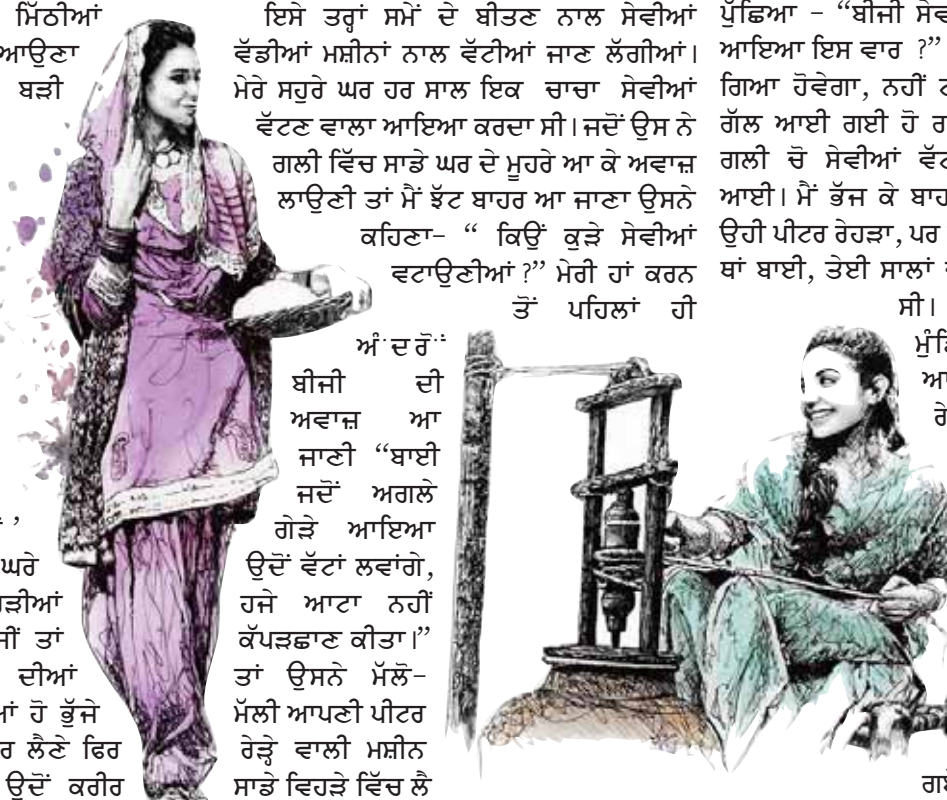 ਮਿੱਠੀਆਂ
ਆਉਣਾ
ਬੜੀ
ਘਰੇ
ਤਾਂ
ਦੀਆਂ
ਹੋ ਭੁੱਜੇ
ਲੈਣੇ ਫਿਰ
ਉਦੋਂ ਕਰੀਰ
ਇਸੇ ਤਰ੍ਹਾਂ ਸਮੇਂ ਦੇ ਬੀਤਣ ਨਾਲ ਸੇਵੀਆਂ
ਵੱਡੀਆਂ ਮਸ਼ੀਨਾਂ ਨਾਲ ਵੱਟੀਆਂ ਜਾਣ ਲੱਗੀਆਂ।
ਮੇਰੇ ਸਹੁਰੇ ਘਰ ਹਰ ਸਾਲ ਇਕ ਚਾਚਾ ਸੇਵੀਆਂ
ਵੱਟਣ ਵਾਲਾ ਆਇਆ ਕਰਦਾ ਸੀ। ਜਦੋਂ ਉਸ ਨੇ
ਗਲੀ ਵਿੱਚ ਸਾਡੇ ਘਰ ਦੇ ਮੂਹਰੇ ਆ ਕੇ ਅਵਾਜ਼
ਲਾਉਣੀ ਤਾਂ ਮੈਂ ਝੱਟ ਬਾਹਰ ਆ ਜਾਣਾ ਉਸਨੇ
ਕਹਿਣਾ- “ ਕਿਉਂ ਕੁੜੇ ਸੇਵੀਆਂ
ਵਟਾਉਣੀਆਂ ?” ਮੇਰੀ ਹਾਂ ਕਰਨ
ਤੋਂ ਪਹਿਲਾਂ ਹੀ
ਅੰਦਰੋਂ
ਬੀਜੀ ਦੀ
ਅਵਾਜ਼ ਆ
ਜਾਣੀ “ਬਾਈ
ਜਦੋਂ ਅਗਲੇ
ਗੇੜੇ ਆਇਆ
ਉਦੋਂ ਵੱਟਾਂ ਲਵਾਂਗੇ,
ਹਜੇ ਆਟਾ ਨਹੀਂ
ਕੱਪੜਛਾਣ ਕੀਤਾ।”
ਤਾਂ ਉਸਨੇ ਮੱਲੋ-
ਮੱਲੀ ਆਪਣੀ ਪੀਟਰ
ਰੇੜ੍ਹੇ ਵਾਲੀ ਮਸ਼ੀਨ
ਸਾਡੇ ਵਿਹੜੇ ਵਿੱਚ ਲੈ
ਪੁੱਛਿਆ - “ਬੀਜੀ
ਆਇਆ ਇਸ ਵਾਰ ?”
ਗਿਆ ਹੋਵੇਗਾ, ਨਹੀਂ
ਗੱਲ ਆਈ ਗਈ ਹੋ
ਗਲੀ ਚੋ ਸੇਵੀਆਂ
ਆਈ। ਮੈਂ ਭੱਜ ਕੇ
ਉਹੀ ਪੀਟਰ ਰੇਹੜਾ, ਪਰ
ਥਾਂ ਬਾਈ, ਤੇਈ ਸਾਲਾਂ
ਸੀ।